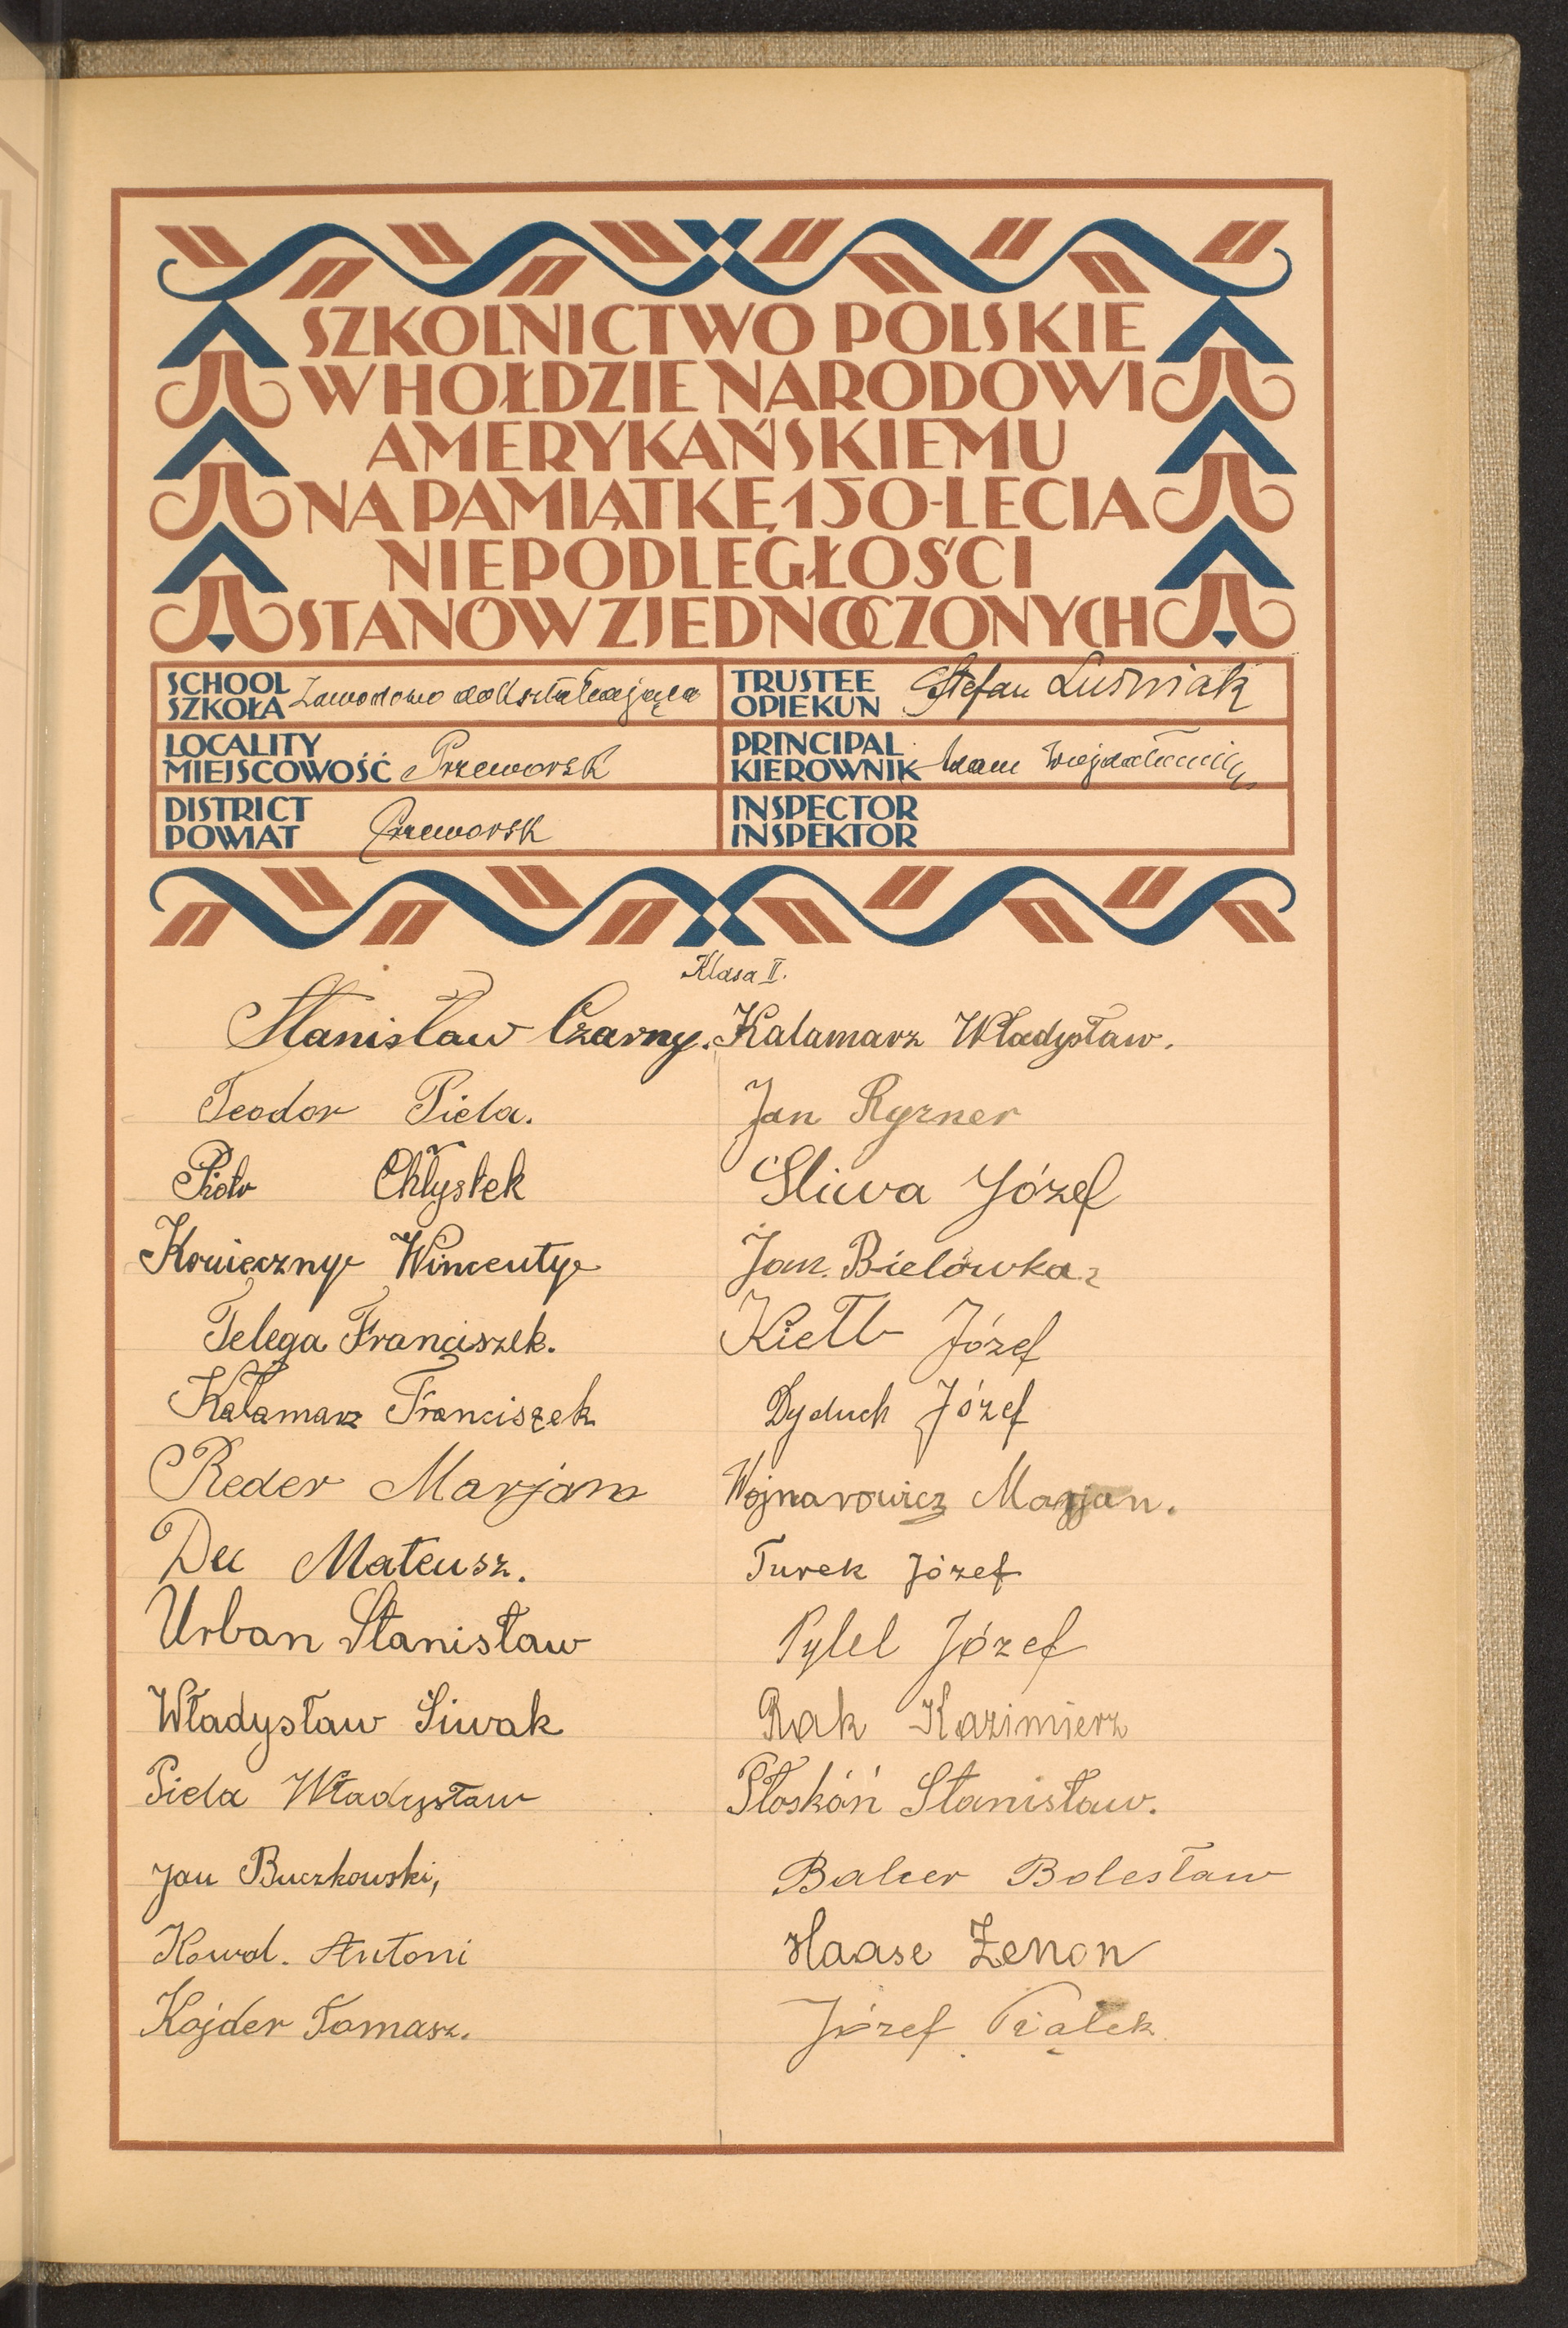 SZKOLNICTWO POLSKIE
W HOŁDZIE NARODOWI
AMERYKAŃSKIEMU
NA PAMIĄTKĘ 150-LECIA
NIEPODLEGŁOŚCI
STANÓW ZJEDNOCZONYCH
SCHOOL
SZKOŁA Zawodowo dokształcająca
TRUSTEE
OPIEKUN Stefan Luśniak
LOCALITY
MIEJSCOWOŚĆ Przeworsk
PRINCIPAL
KIEROWNIK Adam
DISTRICT
POWIAT Przeworsk
INSPECTOR
INSPEKTOR
Klasa II.
Stanisław Czarny.
Teodor Piela.
Piotr Chłystek
Konieczny Wincenty
Telega Franciszek.
Kałamarz Franciszek
Reder Marjan
Dec Mateusz.
Urban Stanisław
Władysław Siwak
Piela Władysław
Jan Buczkowski,
Kowal. Antoni
Kojder Tomasz.
Kalamarz Władysław.
Jan Ryzner
Śliwa Józef
Jan. Bielówka
Kiełb Józef
Dyduch Józef
Wojnarowicz Marjan.
Turek Józef
Pylel Józef
Rak Kazimierz
Płoskóń Stanisław.
Balcer Bolesław
Haase Zenon
Józef Piątek